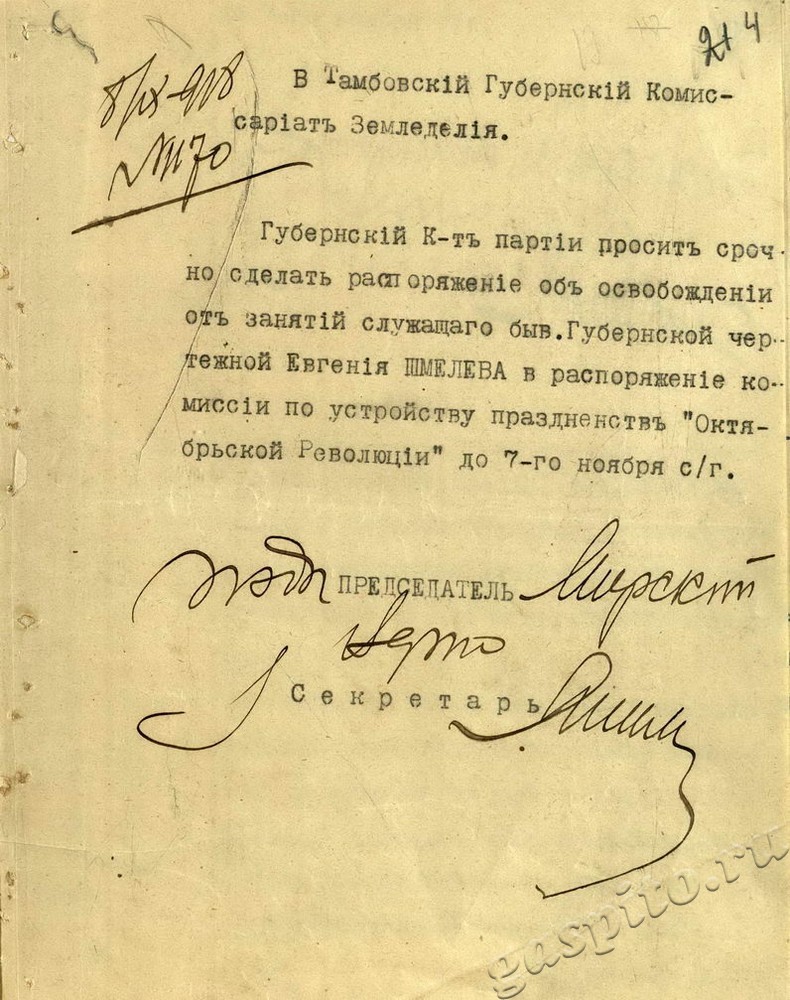 4
8/IX-918
№1170
В Тамбовскій Губернскій Комис-
саріатъ Земледелія.
Губернскій К-тъ партіи проситъ сроч-
но сделать распоряженіе объ освобожденіи
отъ занятій служащаго быв.Губернской чер-
тежной Евгенія ШМЕЛЕВА в распоряженіе ко-
миссіи по устройству праздненствъ "Октя-
брьской Революціи" до 7-го ноября с/г.
ПРЕДСЕДАТЕЛЬ Мирскій
Секретарь
gaspito.ru